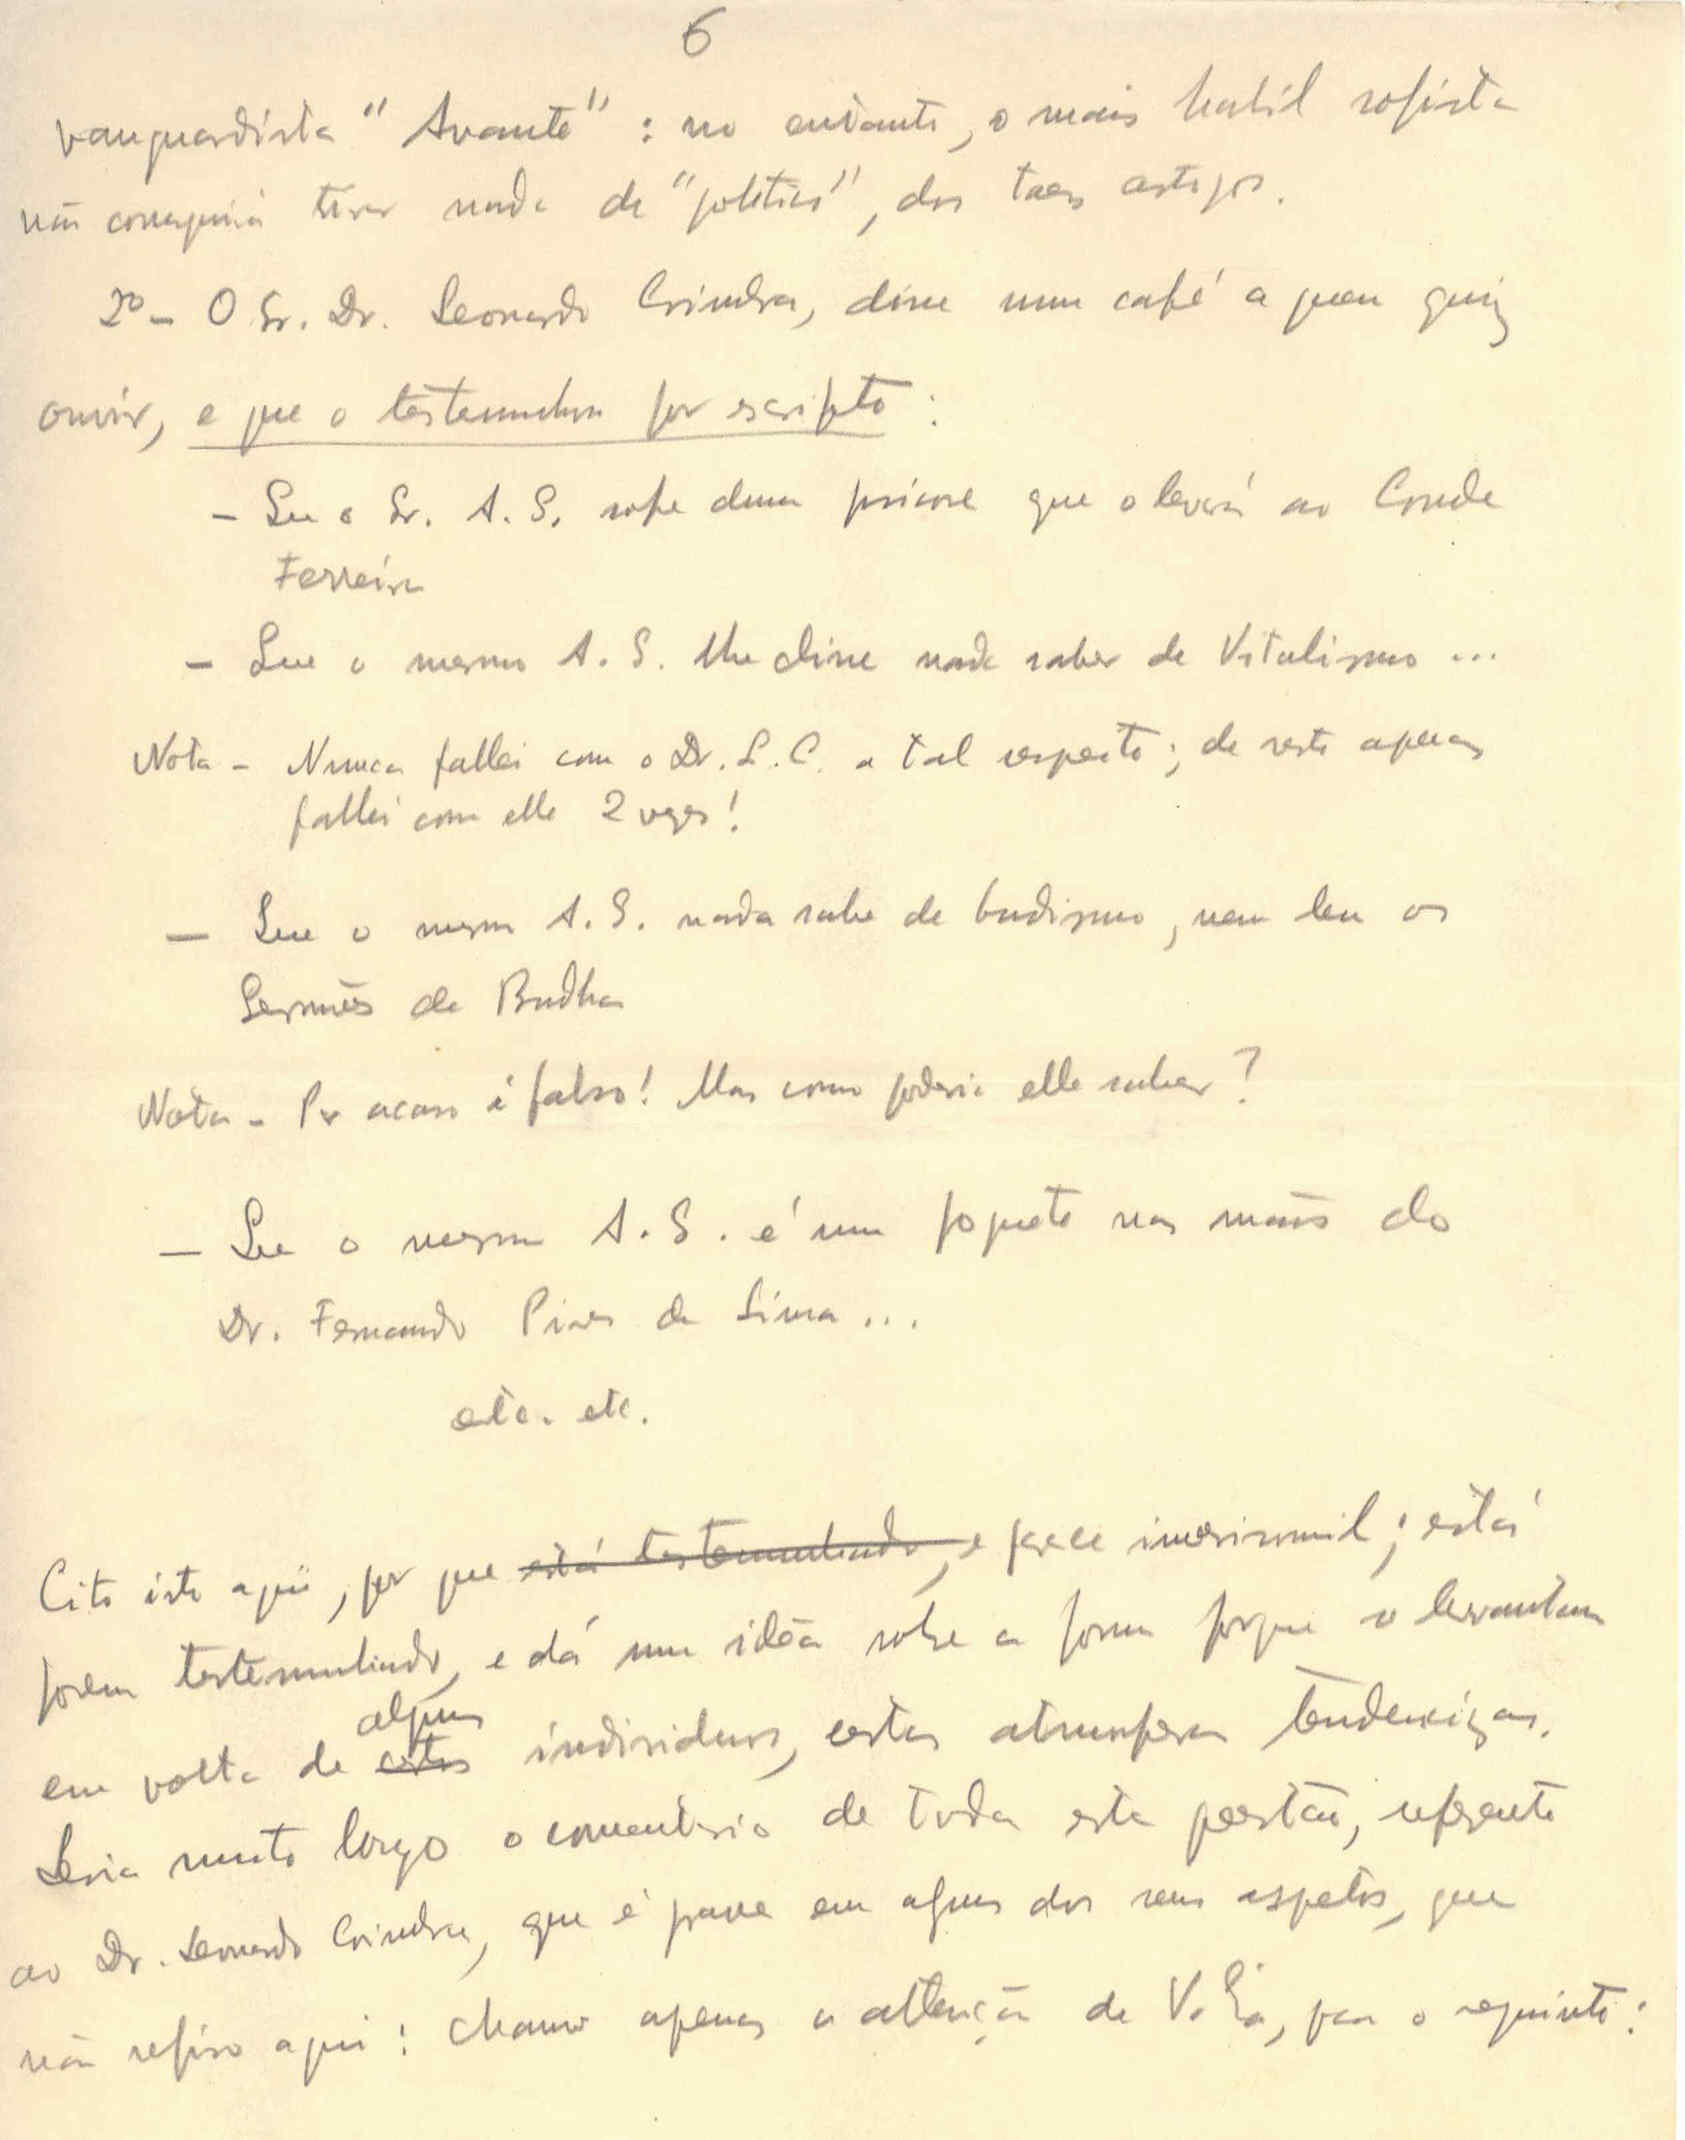 6
vanguardista "Avante" : no entanto, o mais habil sofista
não conseguirá tirar nada de "politico", dos taes artigos.
2º - O Sr. Dr. Leonardo Coimbra, disse num café a quem quiz
ouvir, e que o testemunhou por escripto :
- Que o Sr. A. S. sofre duma psicose que o levará ao Conde
Ferreira
- Que o mesmo A. S. lhe disse nada saber de Vitalismo ...
Nota - Nunca fallei com o Dr. L. C. a tal respeito; de resto apenas
fallei com elle 2 vezes!
- Que o mesmo A. S. nada sabe de budismo, nem leu os
Sermões de Budha
Nota - Por acaso é falso! Mas como poderia elle saber?
- Que o mesmo A. S. é um foguete nas mãos do
Dr. Fernando Pires de Lima ...
etc. etc.
Cito isto aqui, por que está testemunhado, e parece inverisomil; está
porem testemunhado, e dá uma idêa sobre a forma porque se levantam
alguns
em volta de certos individuos, certas atmosferas tendenciozas.
Seria muito longo o comentario de toda esta questão, referente
ao Dr. Leonardo Coimbra, que é grave em alguns dos seus aspetos, que
não refiro aqui : chamo apenas a attenção de V. Ex.ª, para o seguinte :